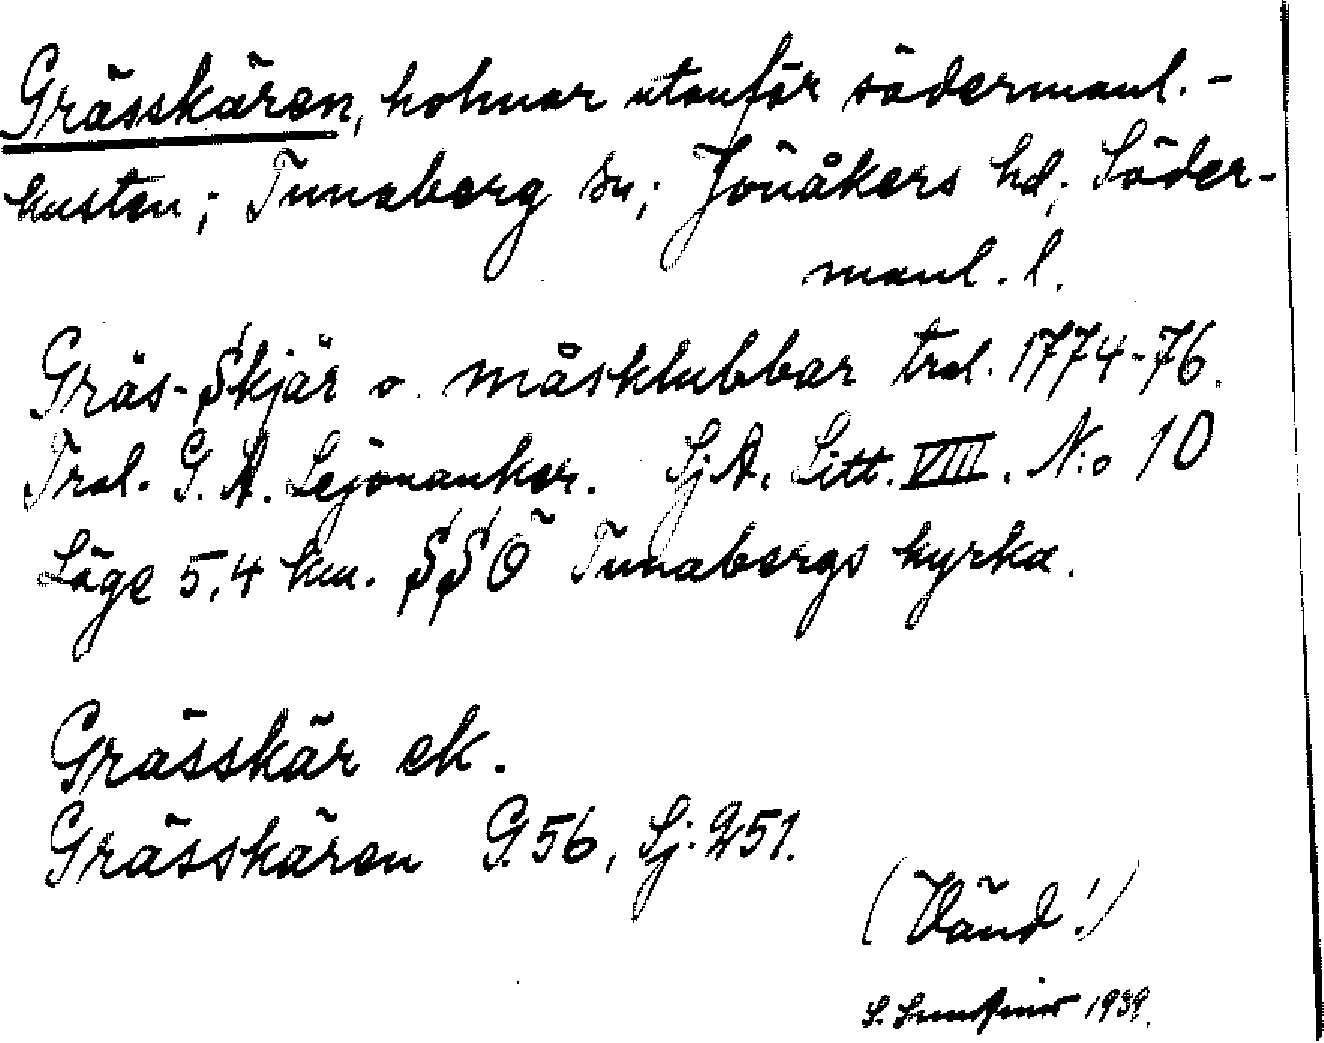 Grässkären, holmar utanför södermanl.-
kusten; Tunaberg sn; Jönåkers hd; Söder-
manl. l.
Gräs-Skjär o. måsklubbar trol. 1774-76.
Trol. G. A. Lejonanker. Sj A. Litt. VIII. N:o 10
Läge 5,4 km. SSÖ Tunabergs kyrka.
Grässkär ek.
Grässkären G. 56, Sj. 251.
(Vänd!)
S. 1939.